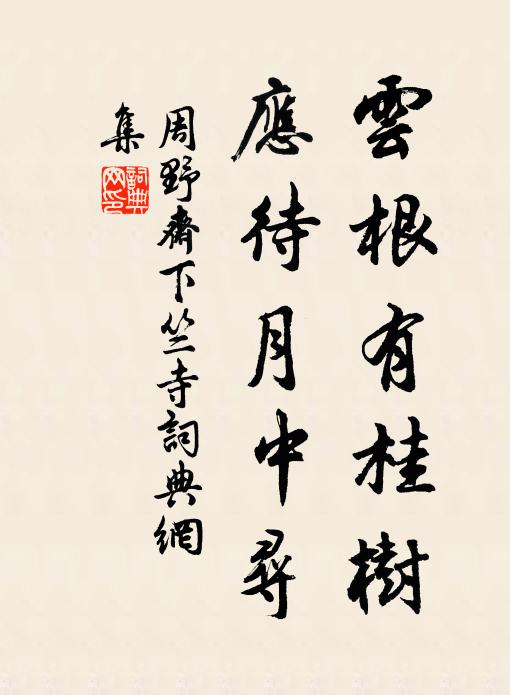 雲根有桂樹
應待月中尋
周野齋下竺寺詞典網
集
詞典網印